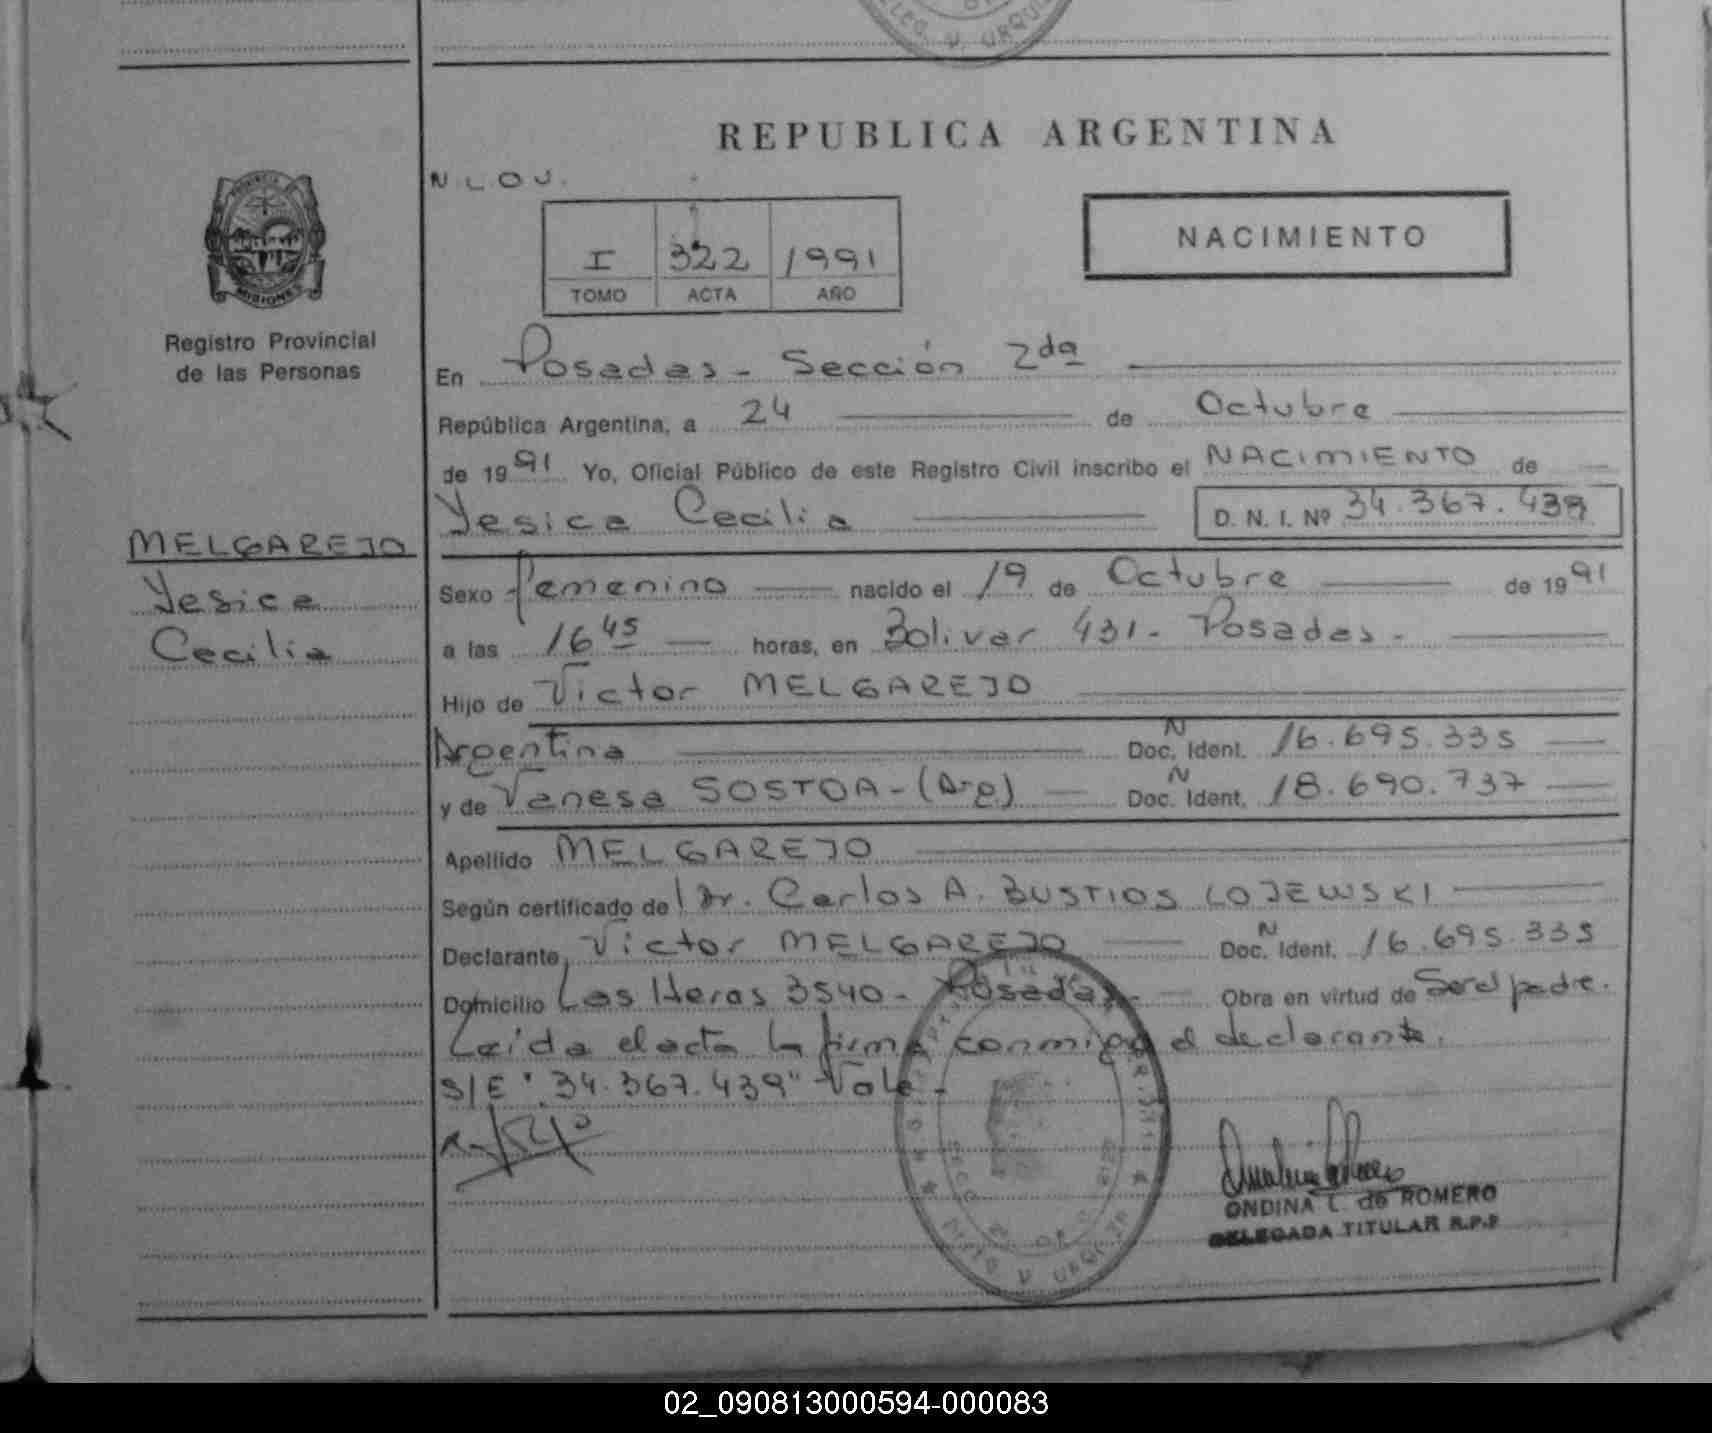 DELEG. V. URQUIZA
REPUBLICA ARGENTINA
N.L.O.J.
I 322 1991
TOMO ACTA AÑO
NACIMIENTO
PROVINCIA DE
MISIONES
Registro Provincial
de las Personas
En Posadas - Sección 2da
República Argentina, a 24 de Octubre
de 1991 Yo, Oficial Público de este Registro Civil inscribo el NACIMIENTO de
Yesica Cecilia D. N. I. Nº 34.367.439
MELGAREJO
Yesica
Cecilia
Sexo femenino nacido el 19 de Octubre de 1991
a las 16 45 horas, en Bolivar 431 - Posadas -
Hijo de Victor MELGAREJO
Argentina N Doc. Ident. 16.695.335
y de Vanesa SOSTOA - (Arg) N Doc. Ident. 18.690.737
Apellido MELGAREJO
Según certificado de Dr. Carlos A. BUSTIOS LOJEWSKI
Declarante Victor MELGAREJO N Doc. Ident. 16.695.335
Domicilio Las Heras 3540 - Posadas - Obra en virtud de Ser el padre.
Leida el acta la firma conmigo el declarante.
S/E "34.367.439" Vale -
V. URQUIZA
ONDINA L. de ROMERO
DELEGADA TITULAR R.P.P
02_090813000594-000083